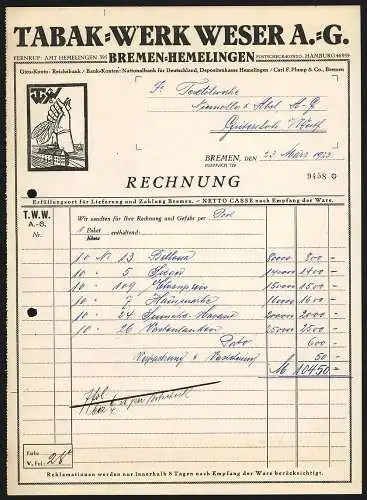 TABAK=WERK WESER A.=G.
FERNRUF: AMT HEMELINGEN 391 BREMEN=HEMELINGEN POSTSCHECK-KONTO: HAMBURG 46959
Giro-Konto: Reichsbank / Bank-Konten: Nationalbank für Deutschland, Depositenkasse Hemelingen / Carl F. Plump & Co., Bremen
T.W.W.
Fa. Textilwerke
& Abel A-G
Gütersloh i/Westf
BREMEN, DEN 23 März 1923
POSTFACH 728
RECHNUNG 9458
Erfüllungsort für Lieferung und Zahlung Bremen. - NETTO CASSE nach Empfang der Ware.
T.W.W.
A.-G.
Nr.
Wir sandten für Ihre Rechnung und Gefahr per Post
1 Paket enthaltend:
Kiste
10 N. 13 Bettina 80000 800 -
10 " 5 Sieger 140000 1400 -
10 " 109 150000 1500 -
10 " 7 Hausmarke 180000 1800 -
10 " 34 Sumatra Havana 200000 2000 -
10 " 26 250000 2500 -
Porto 600 -
Verpackung & 50 -
M 10450 -
Farbe
V. Fol: 28
Reklamationen wurden nur innerhalb 8 Tagen nach Empfang der Ware berücksichtigt.